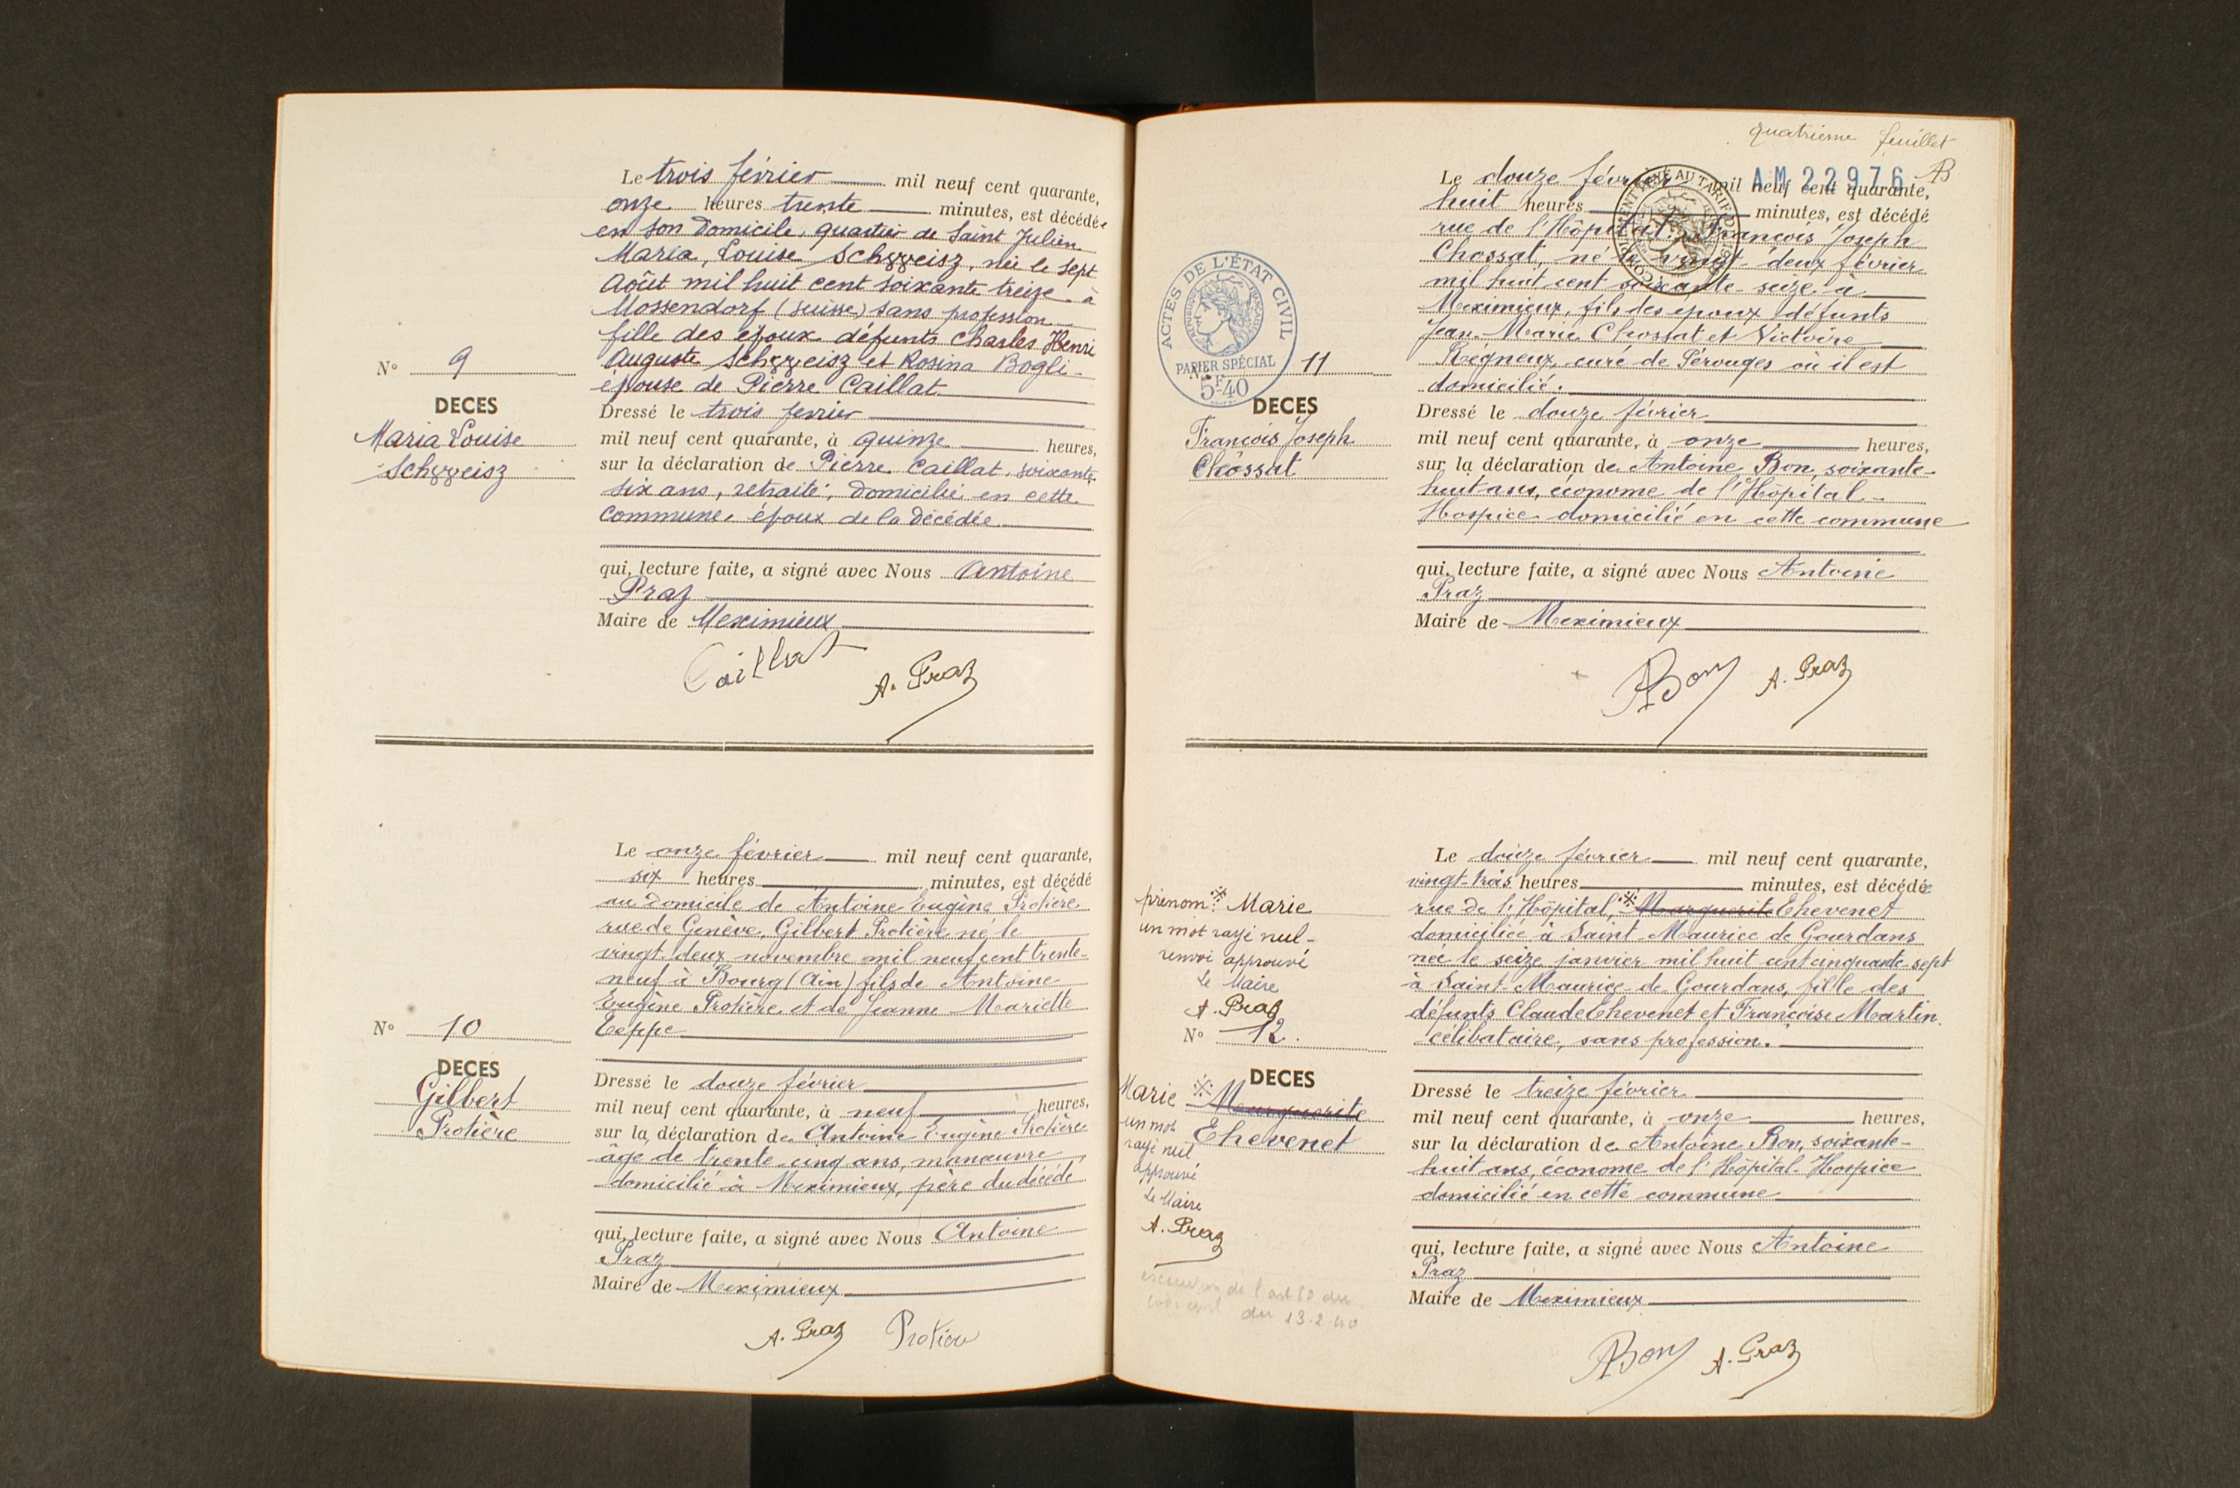 Le trois février mil neuf cent quarante,
onze heures trente minutes, est décédée
en son domicile, quartier de Saint Julien
Maria, Louise Schyyeisz, née le sept
Août mil huit cent soixante treize à
Mossendorf (suisse) sans profession
fille des époux défunts Charles Henri
Auguste Schyyeisz et Rosina Bogli
épouse de Pierre Caillat
N° 9
DECES
Maria Louise
Schyyeisz
Dressé le trois fevrier
mil neuf cent quarante, à quinze heures,
sur la déclaration de Pierre Caillat, soixante
six ans, retraité, domicilié en cette
commune, époux de la décédée
qui, lecture faite, a signé avec Nous Antoine
Praz
Maire de Meximieux
Caillat
A. Praz
Le onze février mil neuf cent quarante,
six heures minutes, est décédé
au domicile de Antoine Eugène Protière
rue de Genève, Gilbert Protière né le
vingt deux novembre mil neuf cent trente-
neuf à Bourg (Ain) fils de Antoine
Eugène Protière et de Jeanne Mariette
Teppe
N° 10
DECES
Gilbert
Protière
Dressé le douze février
mil neuf cent quarante, à neuf heures,
sur la déclaration de Antoine Eugène Protière
âgé de trente cinq ans, manœuvre
domicilié à Meximieux, père du décédé
qui, lecture faite, a signé avec Nous Antoine
Praz
Maire de Meximieux
A. Praz Protière
quatrième feuillet
AM 22976 AB
Le douze février mil neuf cent quarante,
huit heures minutes, est décédé
rue de l'Hôpital, François Joseph
Chossat, né le vingt-deux février
mil huit cent soixante-seize à
Meximieux, fils des époux défunts
Jean-Marie Chossat et Victoire
Régneux, curé de Pérouges où il est
domicilié.
ACTES DE L'ÉTAT CIVIL
PAPIER SPÉCIAL
5F40
11
DECES
François Joseph
Chossat
Dressé le douze février
mil neuf cent quarante, à onze heures,
sur la déclaration de Antoine Bon, soixante-
huit ans, économe de l'Hôpital-
Hospice domicilié en cette commune
qui, lecture faite, a signé avec Nous Antoine
Praz
Maire de Meximieux
ABon A. Praz
Le douze février mil neuf cent quarante,
vingt-trois heures minutes, est décédée
rue de l'Hôpital, Marguerite Thevenet
domiciliée à Saint-Maurice de Gourdans
née le seize janvier mil huit cent cinquante-sept
à Saint-Maurice-de Gourdans, fille des
défunts Claude Thevenet et Françoise Martin.
célibataire, sans profession.
prénom: Marie
un mot rayé nul-
renvoi approuvé
Le Maire
A. Praz
N° 12.
DECES
Marie Marguerite
Thevenet
un mot
rayé nul
approuvé
Le Maire
A. Praz
du 13.2.40
Dressé le treize février
mil neuf cent quarante, à onze heures,
sur la déclaration de Antoine Bon, soixante-
huit ans, économe de l'Hôpital-Hospice
domicilié en cette commune
qui, lecture faite, a signé avec Nous Antoine
Praz
Maire de Meximieux
ABon A. Praz